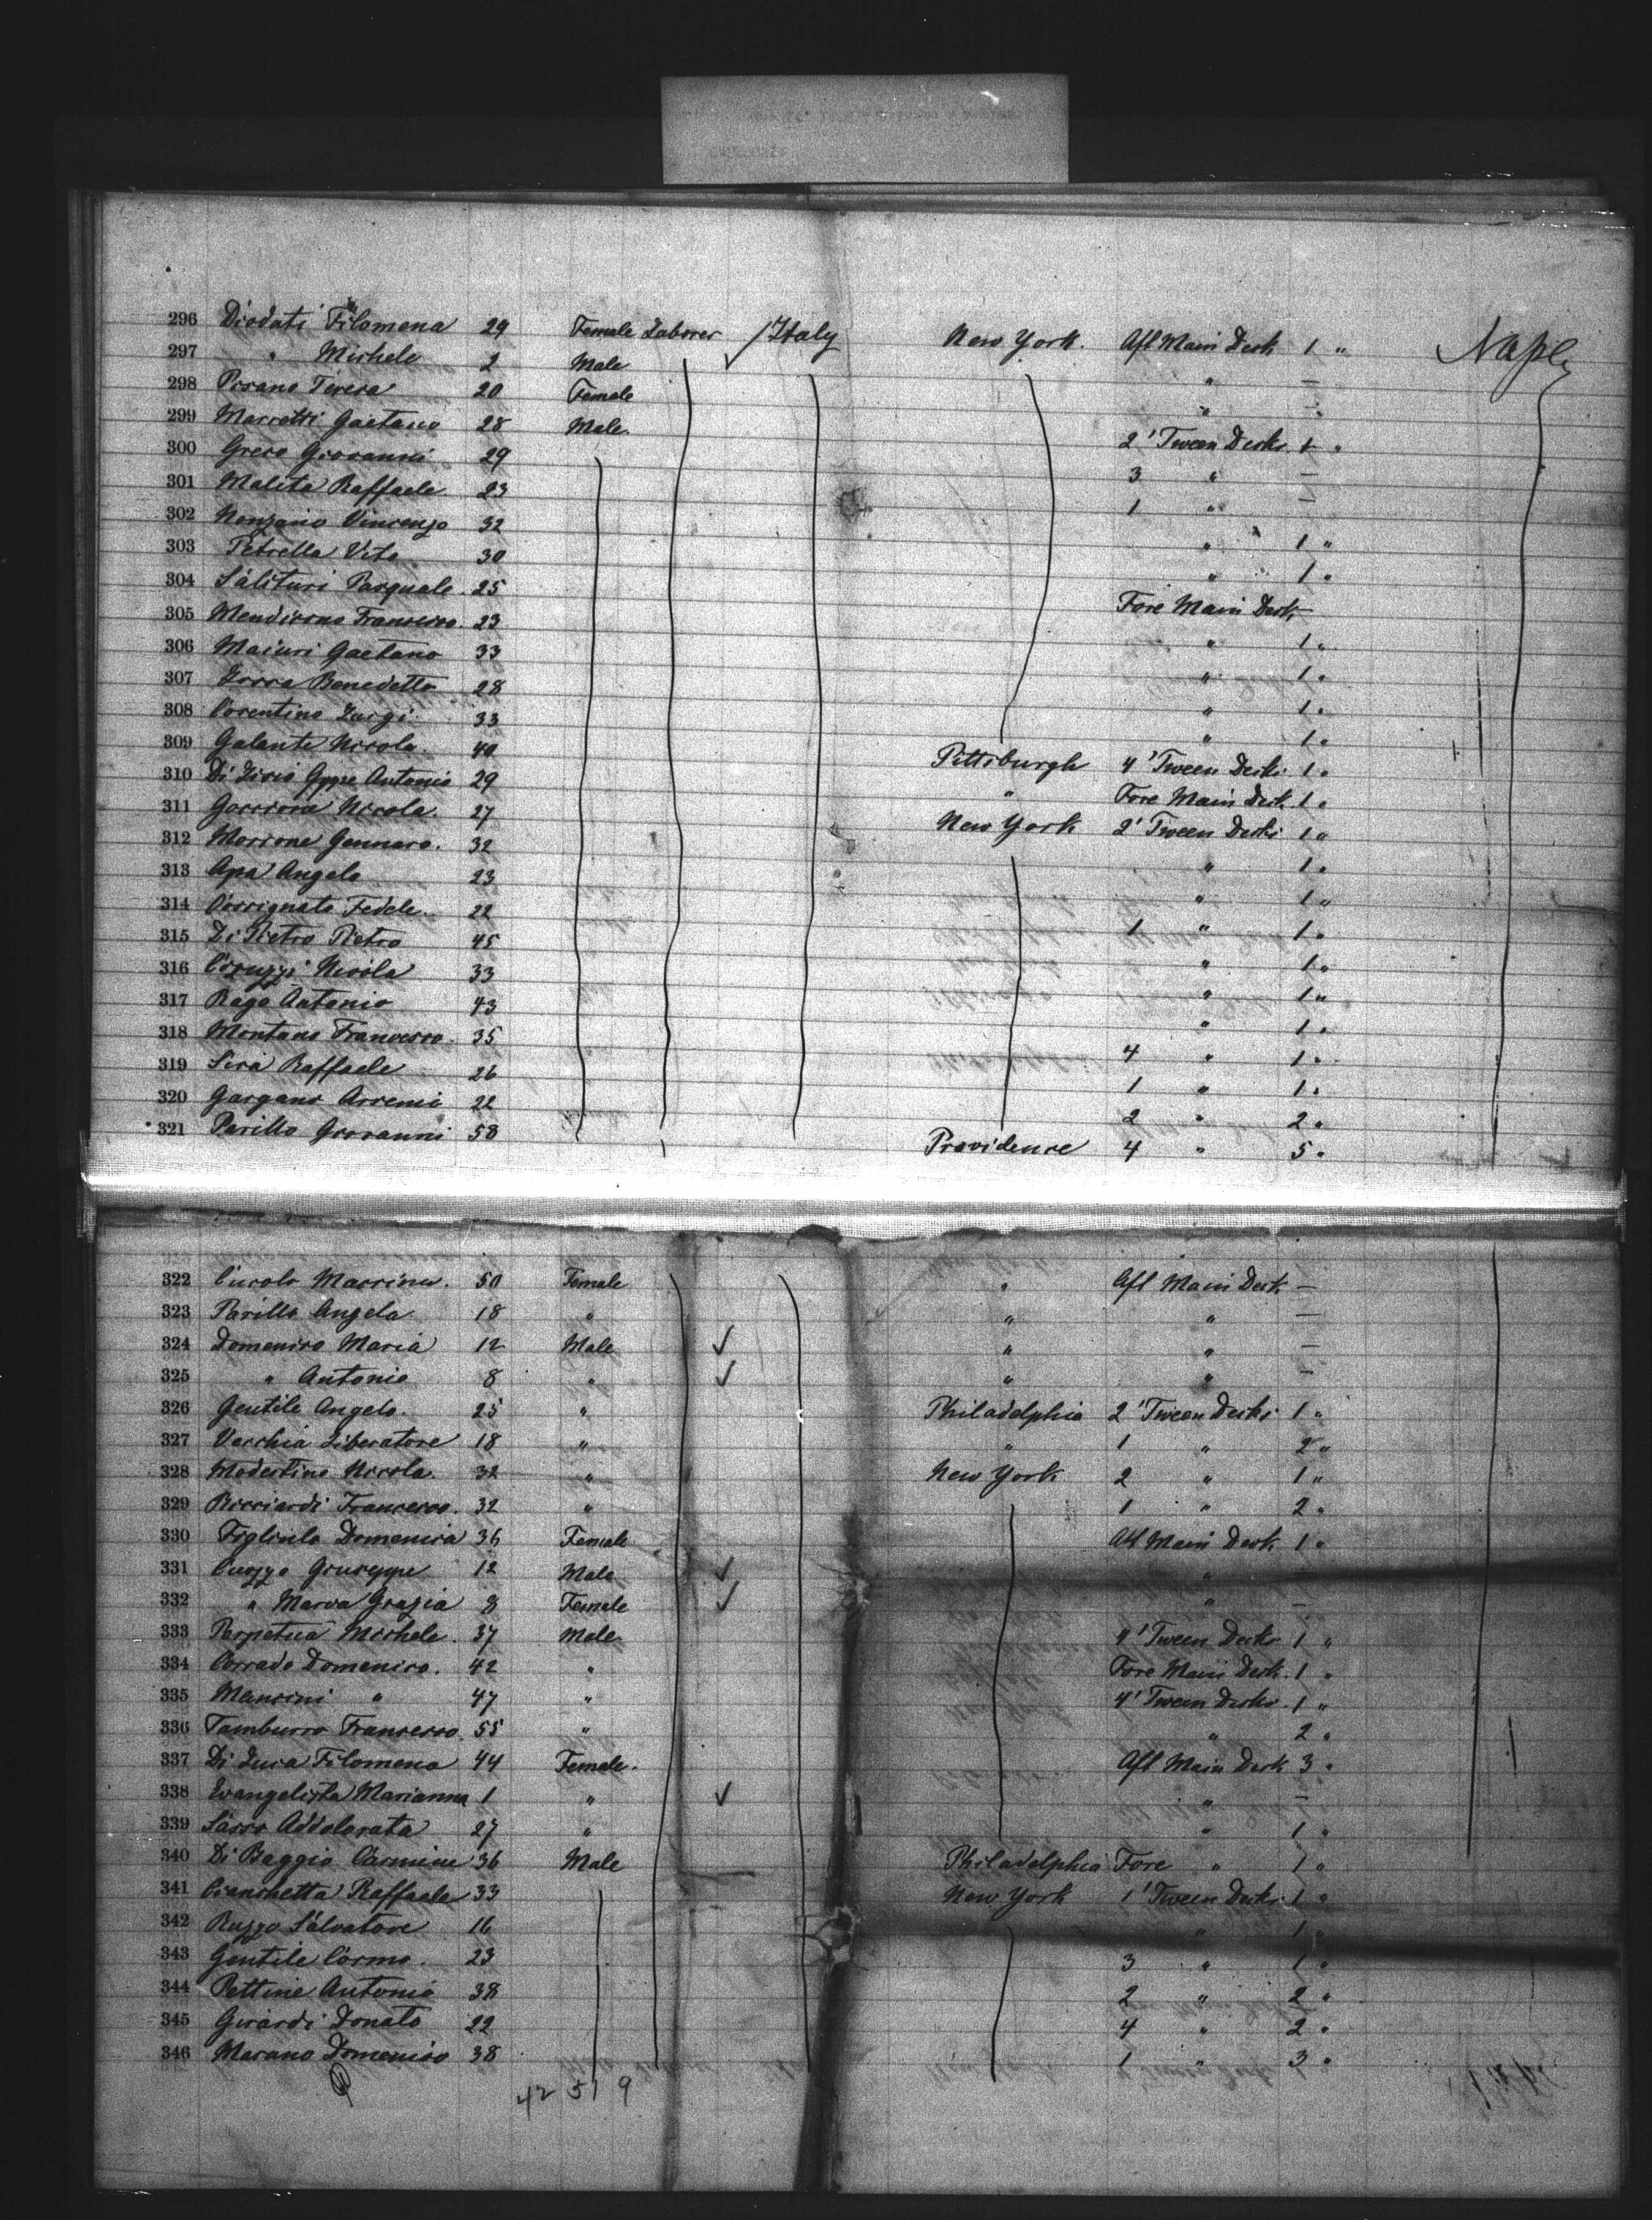 296 Diodati Filomena 29 Female Laborer / Italy New York. Aft Main Deck 1 " Naples
297 " Michele 2 Male ✓ " —
298 Pisano Teresa 20 Female " —
299 Marretti Gaetano 28 Male. 2 'Tween Decks 1 "
300 Greco Giovanni 29 3 " —
301 Malita Raffaele 23 1 " —
302 Nonzario Vincenzo 32 " 1 "
303 Petrella Vito 30 " 1 "
304 Salituri Pasquale 25 Fore Main Deck
305 Francesco 23 " 1 "
306 Maiuri Gaetano 33 " 1 "
307 Zocca Benedetto 28 " 1 "
308 Corentino Luigi 33 " 1 "
309 Galante Nicola. 40 Pittsburgh 4 'Tween Decks 1 "
310 Di Lisio Gppe Antonio 29 " Fore Main Deck 1 "
311 Nicola. 27 New York 2' Tween Decks 1 "
312 Morrone Gennaro. 32 " 1 "
313 Apa Angelo 23 " 1 "
314 Corrignato Fedele. 22 1 " 1 "
315 Di Pietro Pietro 45 " 1 "
316 Nicola 33 " 1 "
317 Rago Antonio 43 " 1 "
318 Montano Francesco 35 4 " 1 "
319 Sica Raffaele 26 1 " 1 "
320 Gargano Arsenio 22 2 " 2 "
321 Parillo Giovanni 58 Providence 4 " 5 "
322 Cucolo 50 Female " Aft Main Deck —
323 Parillo Angela 18 " " " —
324 Domenico Maria 12 Male ✓ " " —
325 " Antonio 8 " ✓ " " —
326 Gentile Angelo. 25 " Philadelphia 2 'Tween Decks 1 "
327 Vecchia Liberatore 18 " " 1 " 2 "
328 Modestino Nicola. 32 " New York 2 " 1 "
329 Ricciardi Francesco. 32 " 1 " 2 "
330 Figliulo Domenica 36 Female Aft Main Deck 1 "
331 Cuozzo Giuseppe 12 Male ✓ "
332 " Maria Grazia 8 Female ✓ " —
333 Perpetua Michele. 37 Male 4 'Tween Decks 1 "
334 Corrado Domenico. 42 " Fore Main Deck. 1 "
335 Mancini " 47 " 4' Tween Decks. 1 "
336 Tamburro Francesco. 55 " " 2 "
337 Di Luca Filomena 44 Female. Aft Main Deck 3 "
338 Evangelista Marianna 1 " ✓ " —
339 Sasso Addolorata 27 " " 1 "
340 Di Baggio Carmine 36 Male Philadelphia Fore " 1 "
341 Cianchetta Raffaele 33 New York 1 'Tween Decks 1 "
342 Ruzzo Salvatore 16 " 1 "
343 Gentile Cosmo. 23 3 " 1 "
344 Pettine Antonio 38 2 " 2 "
345 Girardi Donato 22 4 " 2 "
346 Marano Domenico 38 1 " 3 "
42 51 9